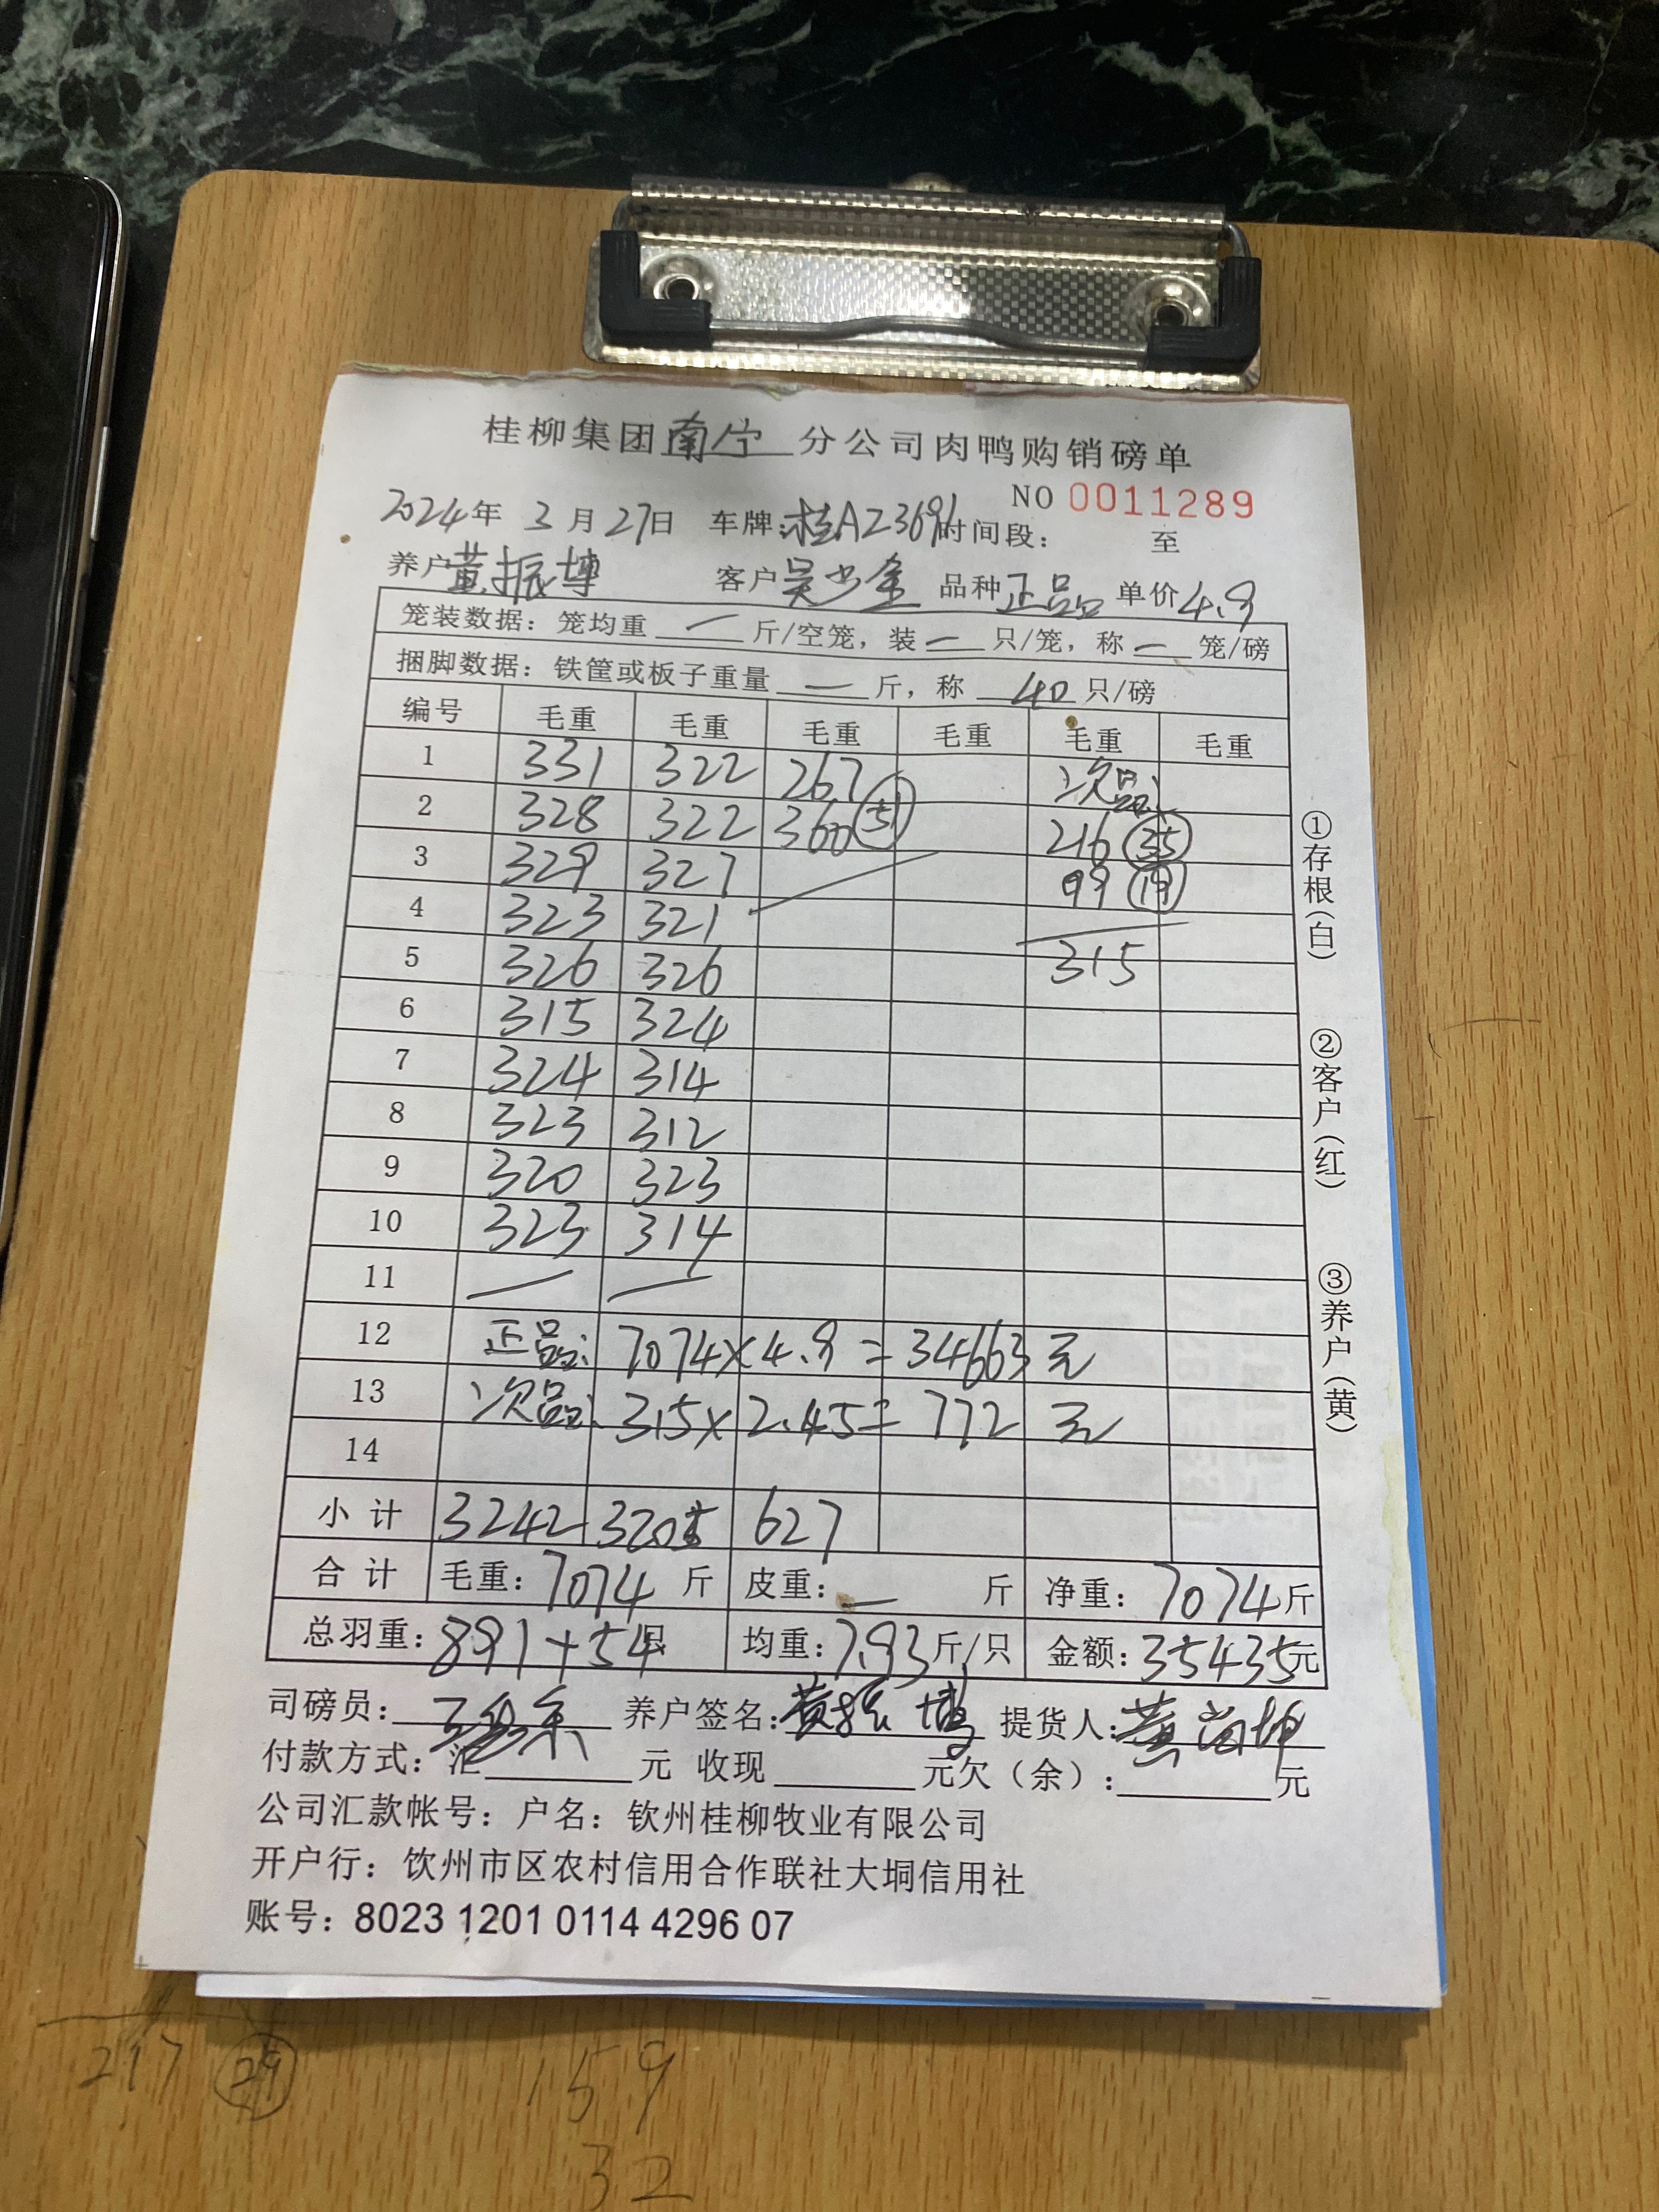 桂柳集团南宁分公司肉鸭购销磅单
NO 0011289
2024年 3月27日 车牌:桂AZ3691 时间段: 至
养户 黄振博 客户 吴少金 品种 正品 单价 4.9
笼装数据: 笼均重 — 斤/空笼, 装 — 只/笼, 称 — 笼/磅
捆脚数据: 铁筐或板子重量 — 斤, 称 40 只/磅
编号 毛重 毛重 毛重 毛重 毛重 毛重
1 331 322 267 次品:
2 328 322 360 (51) 216 (35)
3 329 327 99 (19)
4 323 321
5 326 326 315
6 315 324
7 324 314
8 323 312
9 320 323
10 323 314
11 — —
12 正品: 7074×4.9=34663元
13 次品: 315×2.45=772元
14
小计 3242 3205 627
合计 毛重: 7074 斤 皮重: — 斤 净重: 7074斤
总羽重: 891+54只 均重: 7.93斤/只 金额: 35435元
司磅员: 养户签名: 黄振博 提货人: 黄
付款方式: 汇 元 收现 元欠(余): 元
公司汇款帐号: 户名: 钦州桂柳牧业有限公司
开户行: 饮州市区农村信用合作联社大垌信用社
账号: 8023 1201 0114 4296 07
①存根(白)
②客户(红)
③养户(黄)
217 (29) 159
32